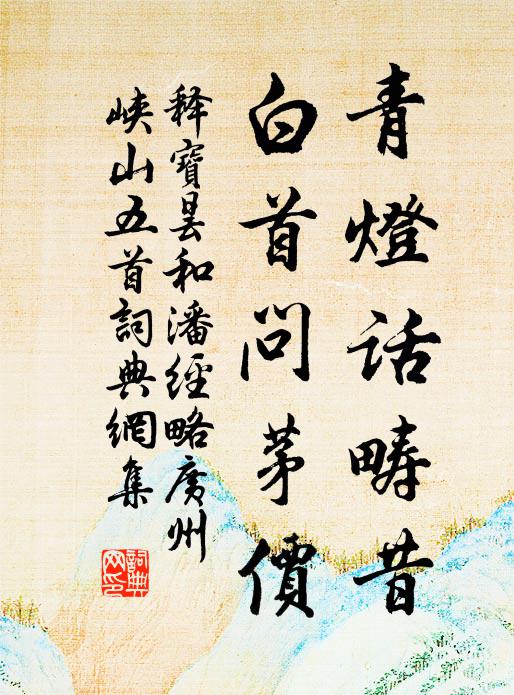 青燈話疇昔
白首問茅價
释寶曇和潘經略廣州
峽山五首詞典網集
詞典网印